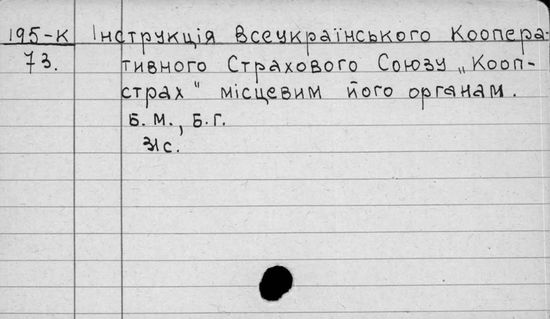 195-К Інструкція Всеукраїнського Коопера-
73. тивного Страхового Союзу „Кооп-
страх" місцевим його органам.
Б.М., Б.Г.
31с.